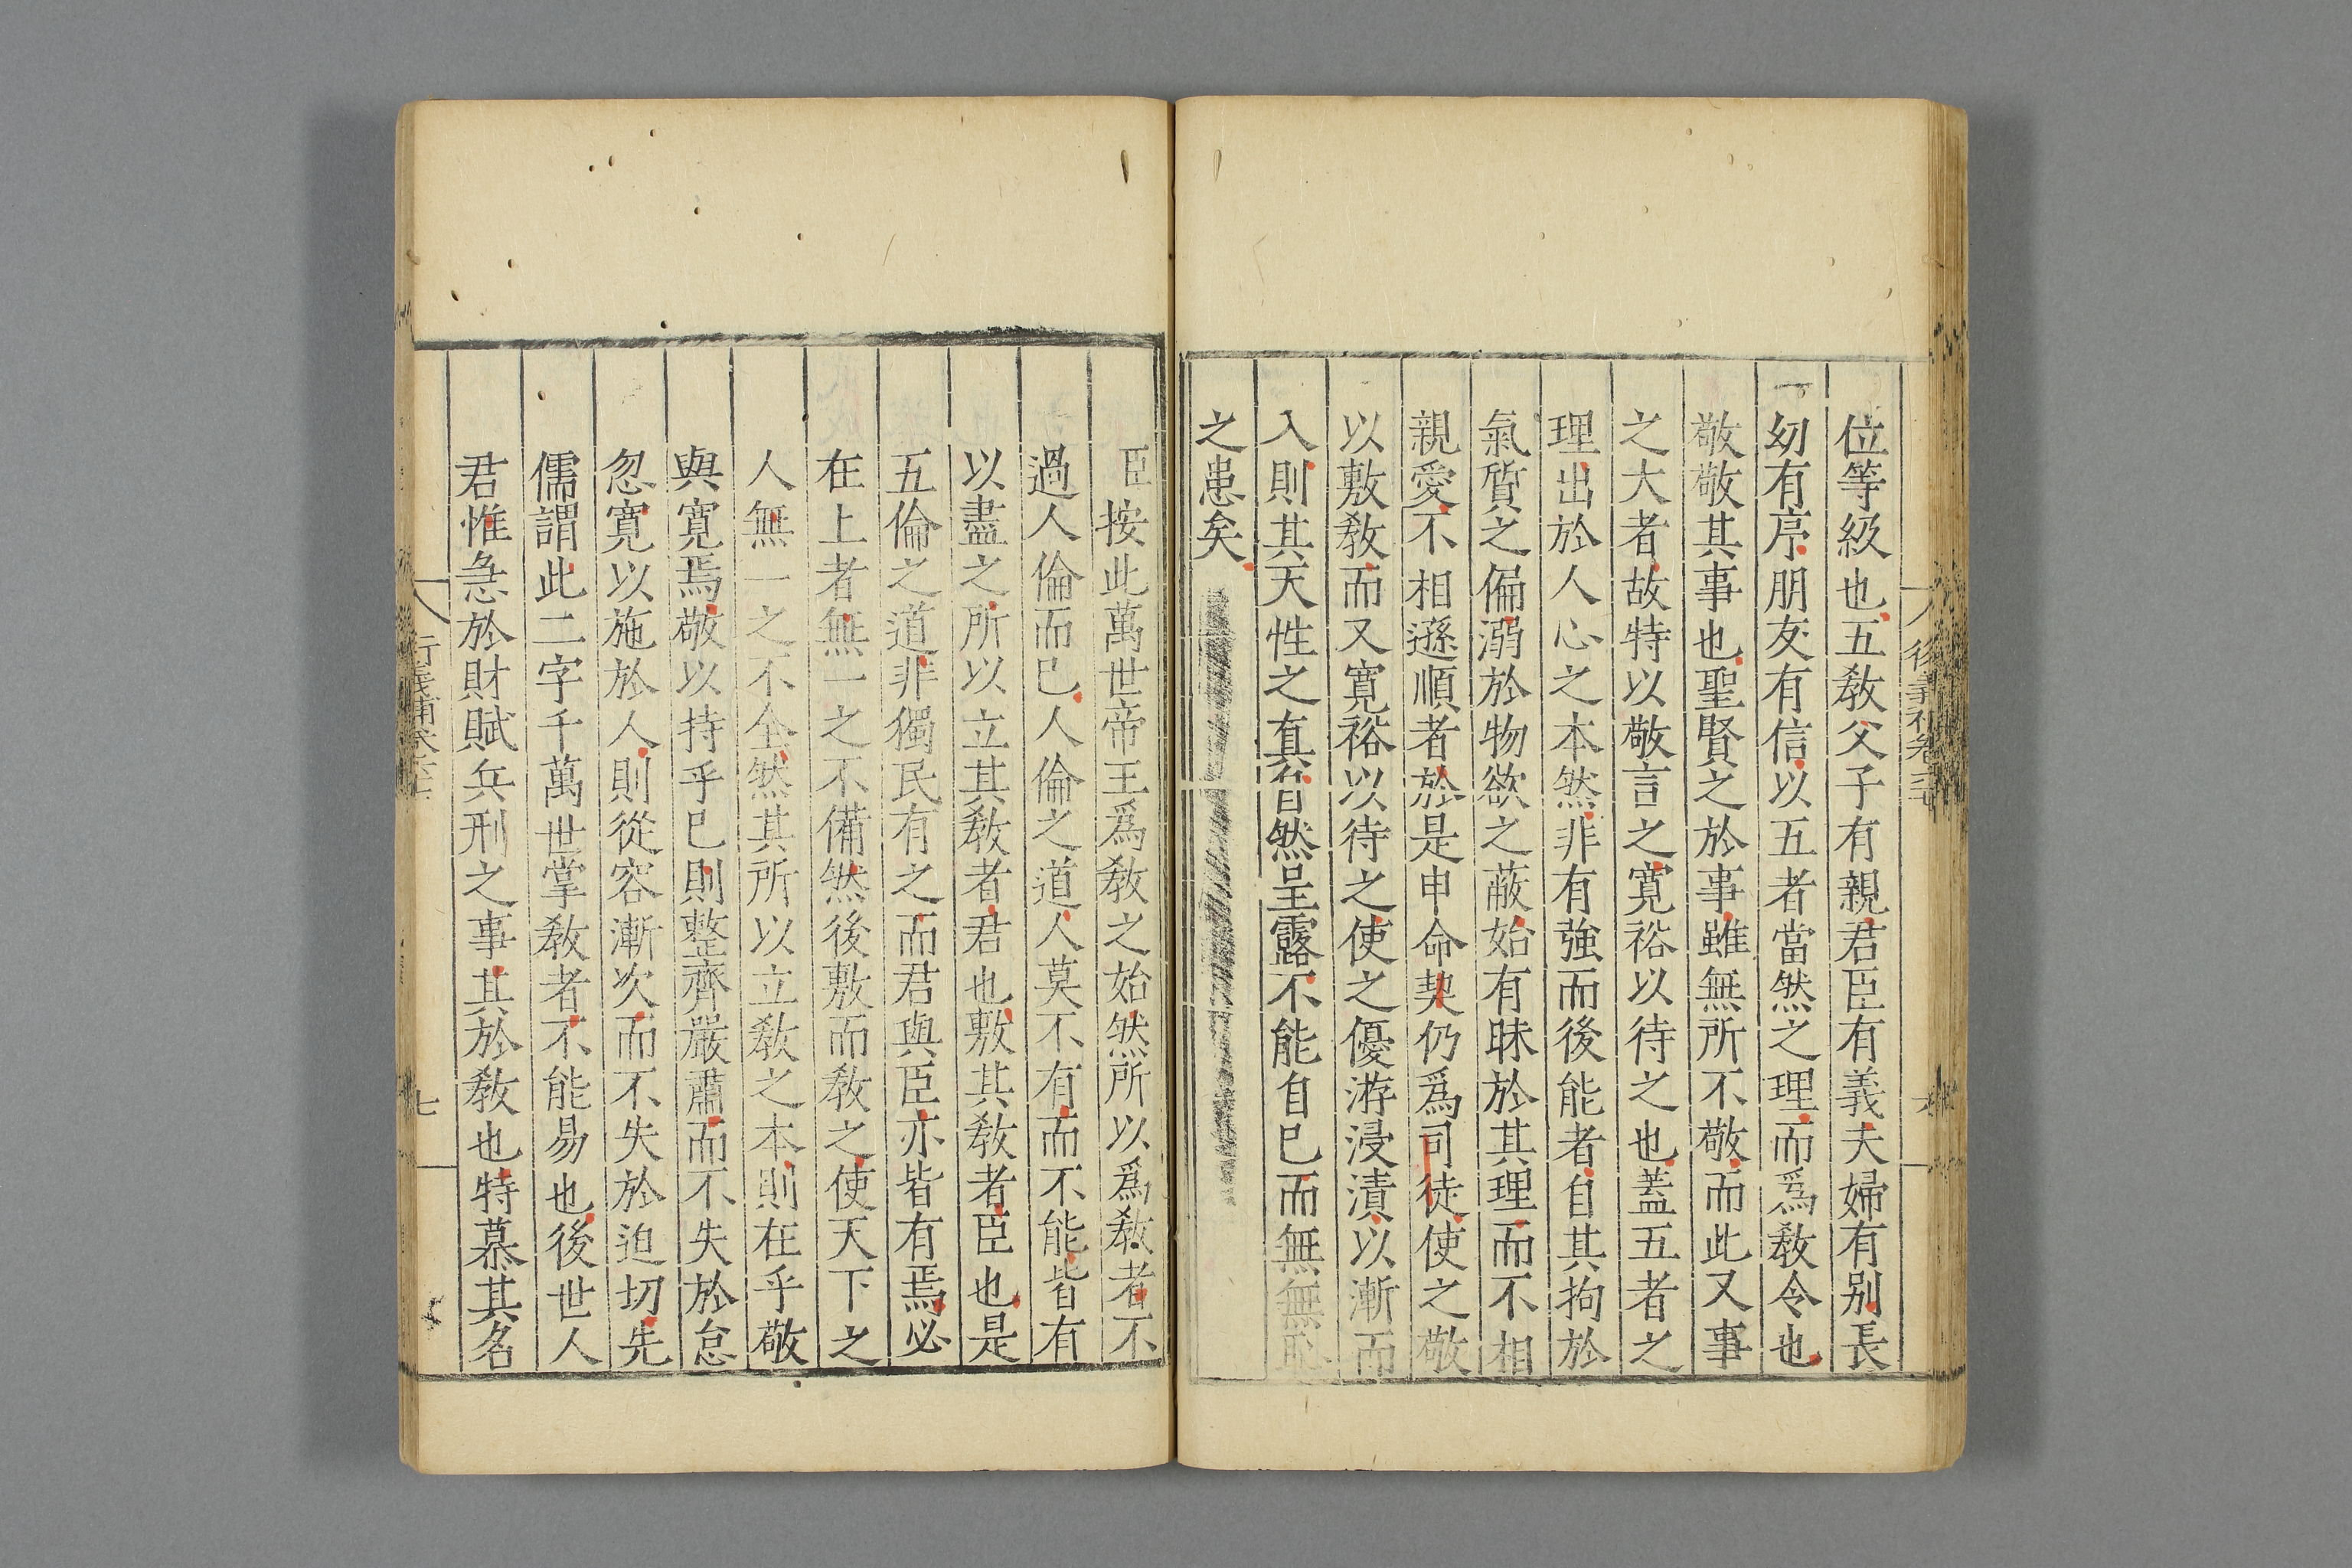 位等級也五教父子有親君臣有義夫婦有別長
幼有序朋友有信以五者當然之理而爲教令也
敬敬其事也聖賢之於事雖無所不敬而此又事
之大者故特以敬言之寬裕以待之也蓋五者之
理出於人心之本然非有強而後能者自其拘於
氣質之偏溺於物欲之蔽始有昧於其理而不相
親愛不相遜順者於是申命契仍爲司徒使之敬
以敷教而又寬裕以待之使之優游浸漬以漸而
入則其天性之真自然呈露不能自已而無無恥
之患矣
臣按此萬世帝王爲教之始然所以爲教者不
過人倫而已人倫之道人莫不有而不能皆有
以盡之所以立其教者君也敷其教者臣也是
五倫之道非獨民有之而君與臣亦皆有焉必
在上者無一之不備然後敷而教之使天下之
人無一之不全然其所以立教之本則在乎敬
與寬焉敬以持乎己則整齊嚴肅而不失於怠
忽寬以施於人則從容漸次而不失於迫切先
儒謂此二字千萬世掌教者不能易也後世人
君惟急於財賦兵刑之事其於教也特慕其名
七